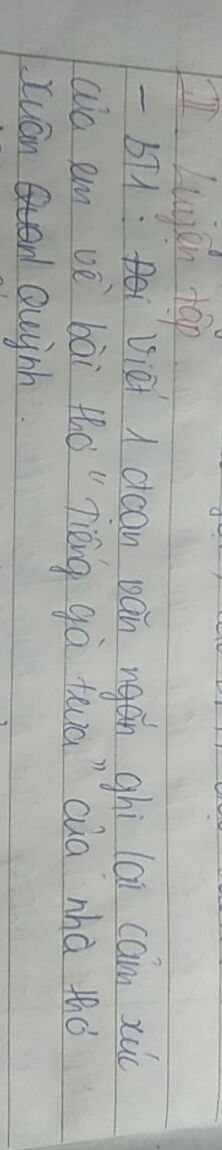 II. Luyện tập
- BT1: viết 1 đoạn văn ngắn ghi lại cảm xúc
của em về bài thơ "Tiếng gà trưa" của nhà thơ
Xuân Quỳnh.